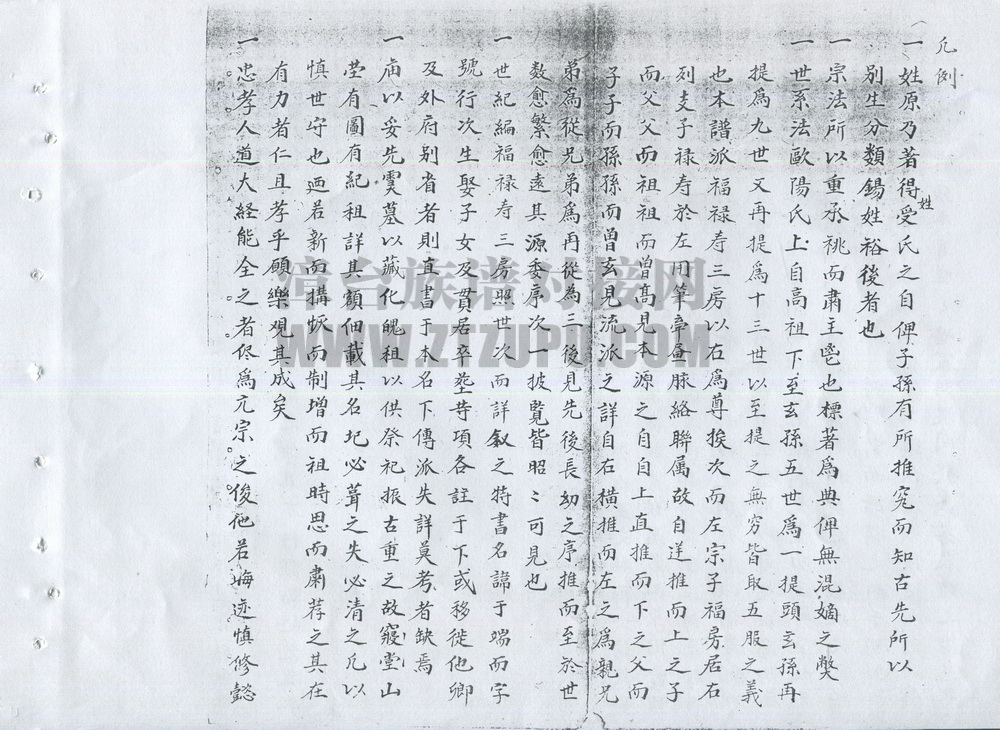 凡例
一姓原乃著得受氏之自俾子孫有所推究而知古先所以
姓
別生分類錫姓裕後者也
一宗法所以重承祧而肅主鬯也標著為典俾無混嫡之弊
一世系法歐陽氏上自高祖下至玄孫五世為一提頭玄孫再
提為九世又再提為十三世以至提之無穷皆取五服之義
也本譜派福禄寿三房以右為尊挨次而左宗子福房居右
列支子禄寿於左用筆牽疊脉絡聯属故自逆推而上之子
而父父而祖祖而曾高見本源之自自上直推而下之父而
子子而孫孫而曾玄見流派之詳自右横推而左之為親兄
弟為從兄弟為再從為三從見先後長幼之序推而至於世
数愈繁愈遠其源委序次一披覧皆昭〻可見也
一世紀編福禄寿三房照世次而詳叙之特書名諱于端而字
號行次生娶子女及貫居卒塟等項各註于下或移徙他鄉
及外府别省者則直書于本名下傳派失詳莫考者缺焉
一庙以妥先霊墓以藏化魄租以供祭祀振古重之故寝堂山
塋有圖有紀租詳其額佃載其名圮必葺之失必清之凡以
慎世守也廼若新而搆恢而制增而祖時思而肅荐之其在
有力者仁且孝乎願樂观其成矣
一忠孝人道大経能全之者侭為亢宗之後他若晦迹慎修懿
港台族谱对接网
WWW.ZTZUPU.COM